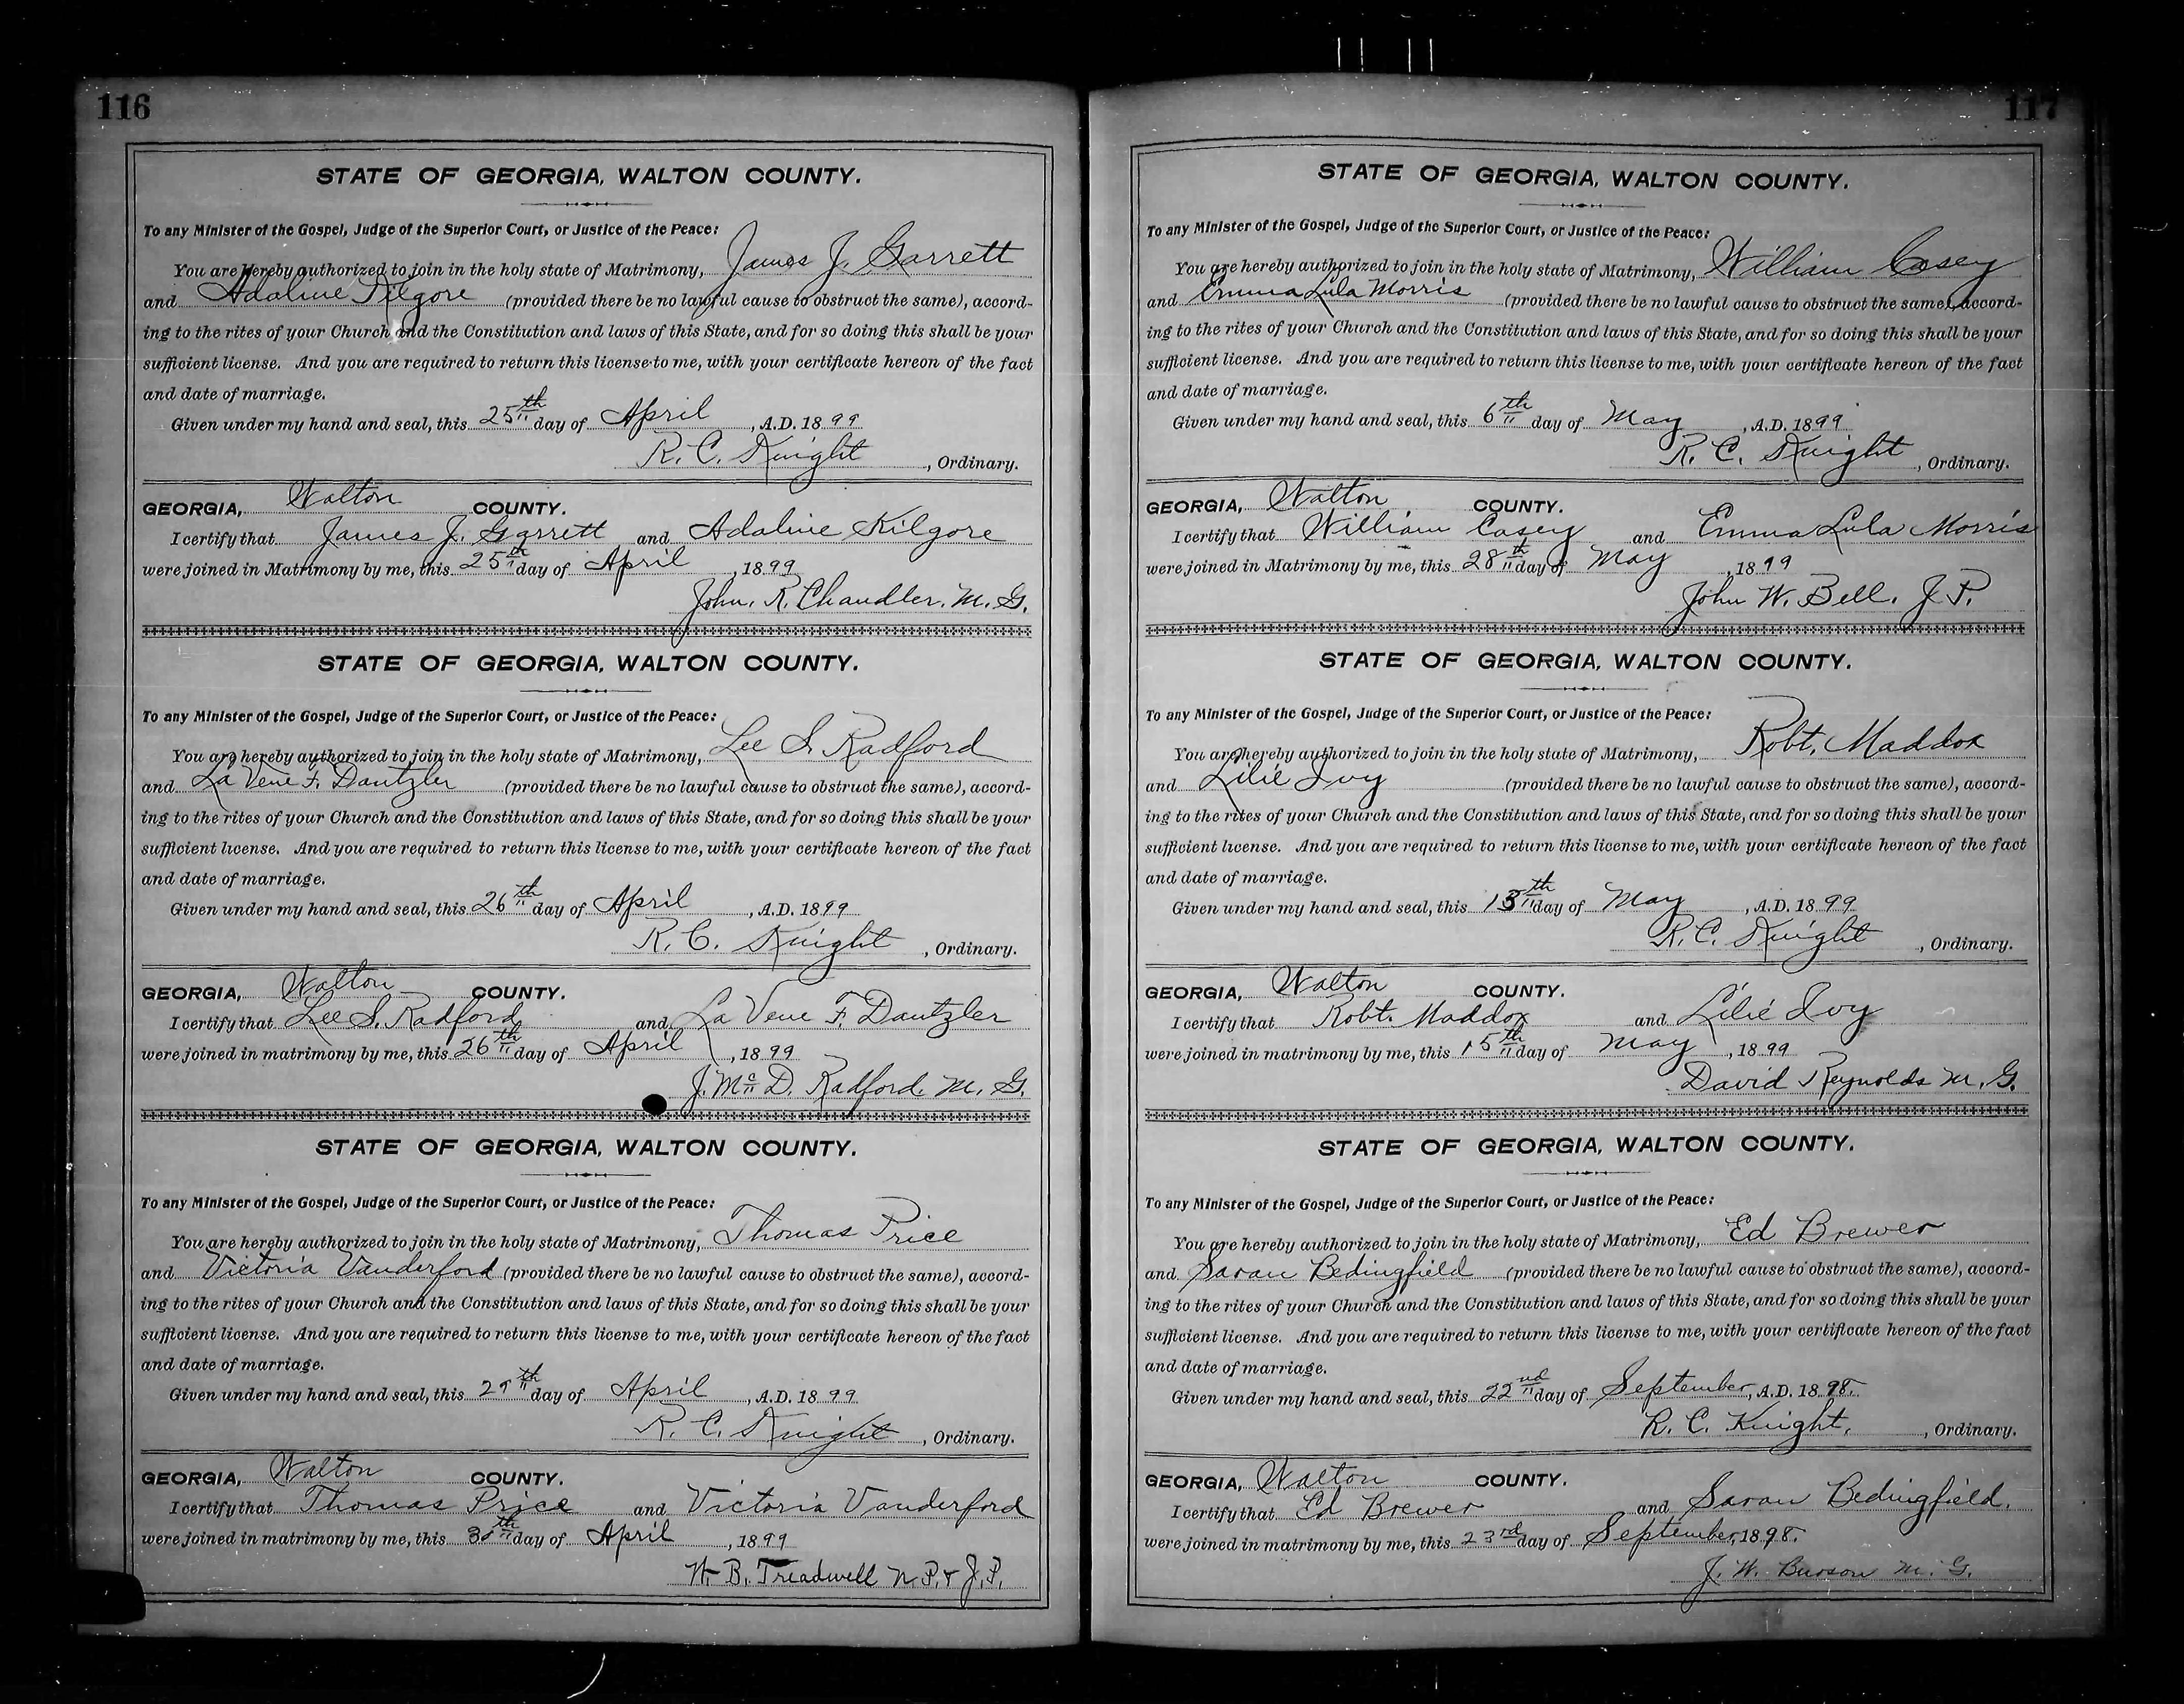 116
STATE OF GEORGIA, WALTON COUNTY.
To any Minister of the Gospel, Judge of the Superior Court, or Justice of the Peace:
You are Hereby authorized to join in the holy state of Matrimony, James J. Garrett
and Adaline Kilgore (provided there be no lawful cause to obstruct the same), accord-
ing to the rites of your Church and the Constitution and laws of this State, and for so doing this shall be your
sufficient license. And you are required to return this license to me, with your certificate hereon of the fact
and date of marriage.
Given under my hand and seal, this 25th day of April, A.D. 1899
R. C. Knight, Ordinary.
GEORGIA, Walton COUNTY.
I certify that James J. Garrett and Adaline Kilgore
were joined in Matrimony by me, this 25th day of April, 1899
John. R. Chandler. M. G.
STATE OF GEORGIA, WALTON COUNTY.
To any Minister of the Gospel, Judge of the Superior Court, or Justice of the Peace:
You are hereby authorized to join in the holy state of Matrimony, Lee S. Radford
and La Vene F. Dantzler (provided there be no lawful cause to obstruct the same), accord-
ing to the rites of your Church and the Constitution and laws of this State, and for so doing this shall be your
sufficient license. And you are required to return this license to me, with your certificate hereon of the fact
and date of marriage.
Given under my hand and seal, this 26th day of April, A.D. 1899
R. C. Knight, Ordinary.
GEORGIA, Walton COUNTY.
I certify that Lee S. Radford and La Vene F. Dantzler
were joined in matrimony by me, this 26th day of April, 1899
J. Mc D. Radford. M. G.
STATE OF GEORGIA, WALTON COUNTY.
To any Minister of the Gospel, Judge of the Superior Court, or Justice of the Peace:
You are hereby authorized to join in the holy state of Matrimony, Thomas Price
and Victoria Vanderford (provided there be no lawful cause to obstruct the same), accord-
ing to the rites of your Church and the Constitution and laws of this State, and for so doing this shall be your
sufficient license. And you are required to return this license to me, with your certificate hereon of the fact
and date of marriage.
Given under my hand and seal, this day of April, A.D. 1899
R. C. Knight, Ordinary.
GEORGIA, Walton COUNTY.
I certify that Thomas Price and Victoria Vanderford
were joined in matrimony by me, this 30th day of April, 1899
W. B. Treadwell N.P. & J.P.
117
STATE OF GEORGIA, WALTON COUNTY.
To any Minister of the Gospel, Judge of the Superior Court, or Justice of the Peace:
You are hereby authorized to join in the holy state of Matrimony, William Casey
and Emma Lula Morris (provided there be no lawful cause to obstruct the same), accord-
ing to the rites of your Church and the Constitution and laws of this State, and for so doing this shall be your
sufficient license. And you are required to return this license to me, with your certificate hereon of the fact
and date of marriage.
Given under my hand and seal, this 6th day of May, A.D. 1899
R. C. Knight, Ordinary.
GEORGIA, Walton COUNTY.
I certify that William Casey and Emma Lula Morris
were joined in Matrimony by me, this 28th day of May, 1899
John W. Bell. J. P.
STATE OF GEORGIA, WALTON COUNTY.
To any Minister of the Gospel, Judge of the Superior Court, or Justice of the Peace:
You are hereby authorized to join in the holy state of Matrimony, Robt. Maddox
and Lilie Ivy (provided there be no lawful cause to obstruct the same), accord-
ing to the rites of your Church and the Constitution and laws of this State, and for so doing this shall be your
sufficient license. And you are required to return this license to me, with your certificate hereon of the fact
and date of marriage.
Given under my hand and seal, this 13th day of May, A.D. 1899
R. C. Knight, Ordinary.
GEORGIA, Walton COUNTY.
I certify that Robt. Maddox and Lilie Ivy
were joined in matrimony by me, this 15th day of May, 1899
David Reynolds M. G.
STATE OF GEORGIA, WALTON COUNTY.
To any Minister of the Gospel, Judge of the Superior Court, or Justice of the Peace:
You are hereby authorized to join in the holy state of Matrimony, Ed Brewer
and Sarah Bedingfield (provided there be no lawful cause to obstruct the same), accord-
ing to the rites of your Church and the Constitution and laws of this State, and for so doing this shall be your
sufficient license. And you are required to return this license to me, with your certificate hereon of the fact
and date of marriage.
Given under my hand and seal, this 22nd day of September, A.D. 1898.
R. C. Knight, Ordinary.
GEORGIA, Walton COUNTY.
I certify that Ed Brewer and Sarah Bedingfield.
were joined in matrimony by me, this 23rd day of September, 1898.
J. W. Burson M. G.